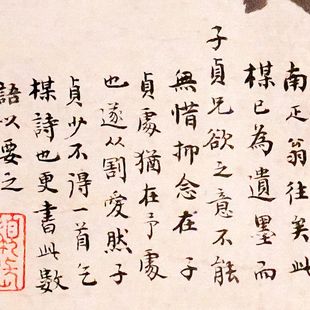 南疋翁往矣此
楳已為遺墨而
子貞兄欲之意不能
無惜抑念在子
貞處猶在予處
也遂从割愛然子
貞少不得一首乞
楳詩也更書此數
語以要之